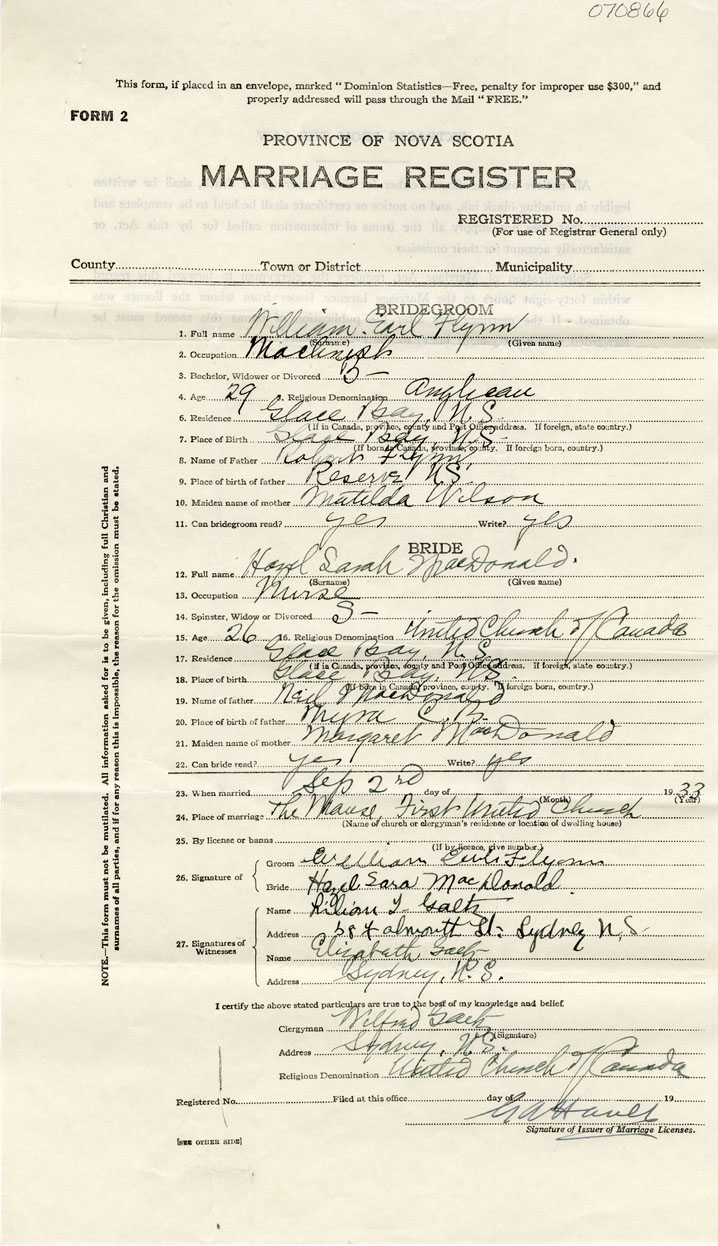 070866
This form, if placed in an envelope, marked "Dominion Statistics—Free, penalty for improper use $300," and
properly addressed will pass through the Mail "FREE."
FORM 2
PROVINCE OF NOVA SCOTIA
MARRIAGE REGISTER
REGISTERED No.
(For use of Registrar General only)
County Town or District Municipality
BRIDEGROOM
1. Full name William Earl Flynn
(Surname) (Given name)
2. Occupation Machinist
3. Bachelor, Widower or Divorced B—
4. Age 29 5. Religious Denomination Anglican
6. Residence Glace Bay, N.S.
(If in Canada, province, county and Post Office address. If foreign, state country.)
7. Place of Birth Glace Bay, N.S.
(If born in Canada, province, county. If foreign born, country.)
8. Name of Father Robert Flynn
9. Place of birth of father Reserve N.S.
10. Maiden name of mother Matilda Wilson
11. Can bridegroom read? yes Write? yes
BRIDE
12. Full name Hazel Sarah MacDonald.
(Surname) (Given name)
13. Occupation Nurse
14. Spinster, Widow or Divorced S—
15. Age 26 16. Religious Denomination United Church of Canada
17. Residence Glace Bay, N.S.
(If in Canada, province, county and Post Office address. If foreign, state country.)
18. Place of birth Glace Bay, N.S.
(If born in Canada, province, county. If foreign born, country.)
19. Name of father Neil MacDonald
20. Place of birth of father Myra C.B.
21. Maiden name of mother Margaret MacDonald
22. Can bride read? yes Write? yes
23. When married Sep 2nd day of 1933
(Month) (Year)
24. Place of marriage The Manse, First United Church
(Name of church or clergyman's residence or location of dwelling house)
25. By license or banns
(If by licence, give number)
26. Signature of
Groom William Earl Flynn
Bride Hazel Sara MacDonald
27. Signatures of Witnesses
Name Lilian Gaetz
Address St. Sydney N.S.
Name Elizabeth Gaetz
Address Sydney, N.S.
I certify the above stated particulars are true to the best of my knowledge and belief
Clergyman Wilfred Gaetz
(Signature)
Address Sydney, N.S.
Religious Denomination United Church of Canada
Registered No. Filed at this office day of 19
Signature of Issuer of Marriage Licenses.
[SEE OTHER SIDE]
NOTE.—This form must not be mutilated. All information asked for is to be given, including full Christian and
surnames of all parties, and if for any reason this is impossible, the reason for the omission must be stated.